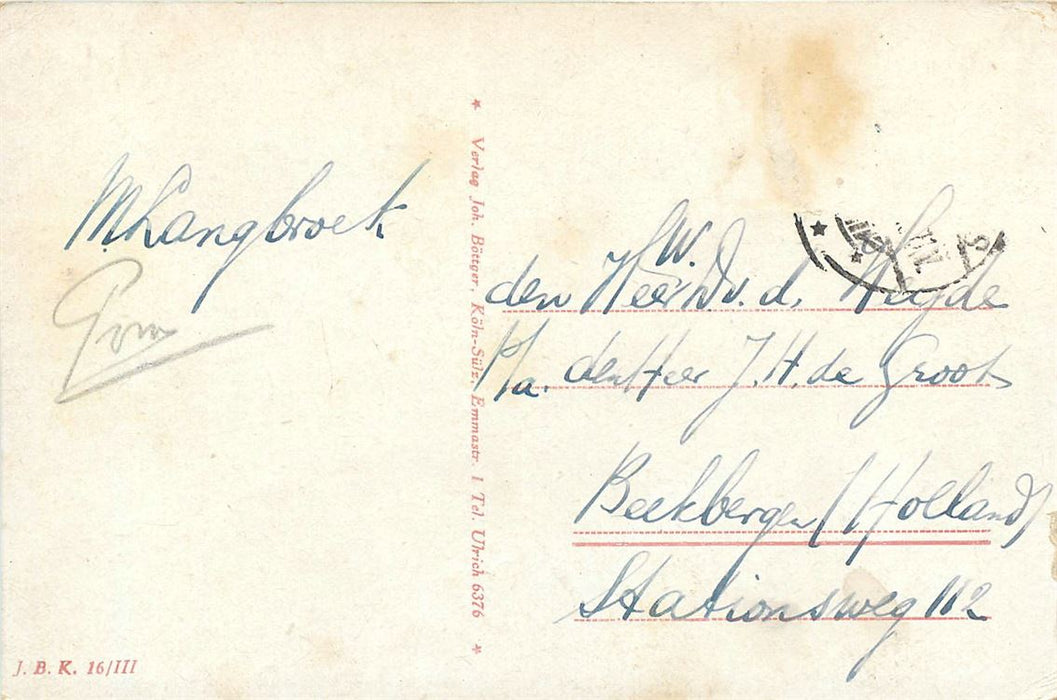 MLangbroek
* Verlag Joh. Böttger, Köln-Sülz, Emmastr. 1 Tel. Ulrich 6376 *
J. B. K. 16/III
W.
den Heer v. d. Heyde
P/a. den Heer J. H. de Groot
Beekbergen (Holland)
Stationsweg 112